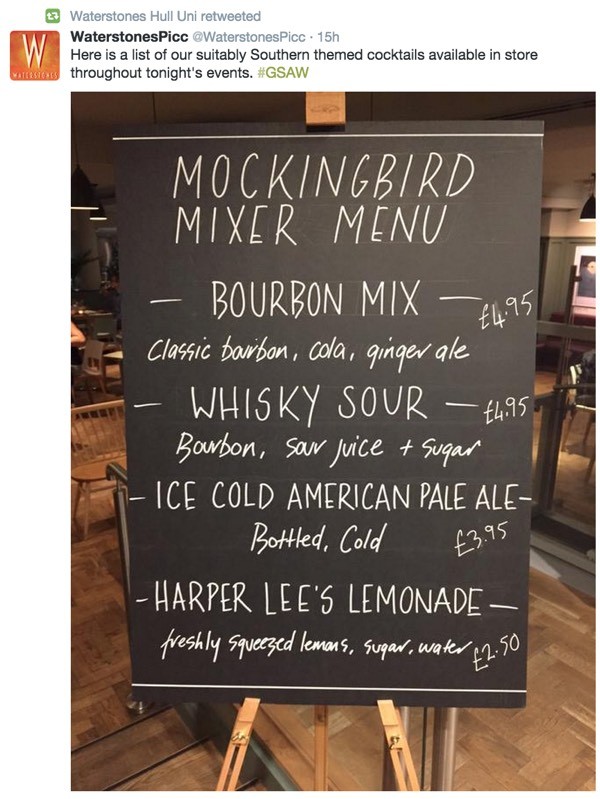 Waterstones Hull Uni retweeted
WaterstonesPicc @WaterstonesPicc · 15h
Here is a list of our suitably Southern themed cocktails available in store
throughout tonight's events. #GSAW
W
WATERSTONES
MOCKINGBIRD
MIXER MENU
— BOURBON MIX — £4.95
Classic bourbon, cola, ginger ale
— WHISKY SOUR — £4.95
Bourbon, sour juice + sugar
- ICE COLD AMERICAN PALE ALE-
Bottled, Cold £3.95
- HARPER LEE'S LEMONADE —
freshly squeezed lemons, sugar, water £2.50